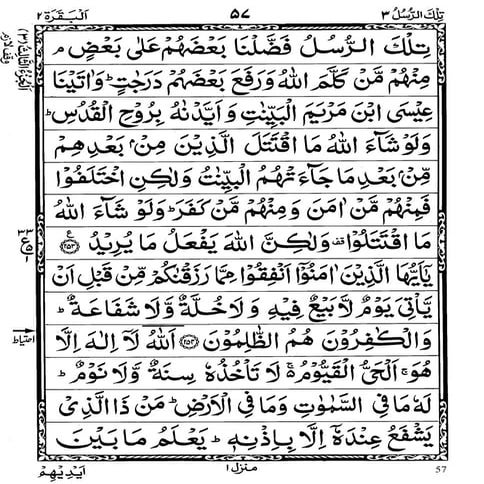 تِلْكَ الرُّسُلُ ٣ ٥٧ اَلْبَقَرَة ٢
تِلْكَ الرُّسُلُ فَضَّلْنَا بَعْضَهُمْ عَلٰى بَعْضٍ ۘ
مِنْهُمْ مَّنْ كَلَّمَ اللّٰهُ وَرَفَعَ بَعْضَهُمْ دَرَجٰتٍ ؕ وَاٰتَيْنَا
عِيْسَى ابْنَ مَرْيَمَ الْبَيِّنٰتِ وَاَيَّدْنٰهُ بِرُوْحِ الْقُدُسِ ؕ
وَلَوْ شَآءَ اللّٰهُ مَا اقْتَتَلَ الَّذِيْنَ مِنْۢ بَعْدِهِمْ
مِّنْۢ بَعْدِ مَا جَآءَتْهُمُ الْبَيِّنٰتُ وَلٰكِنِ اخْتَلَفُوْا
فَمِنْهُمْ مَّنْ اٰمَنَ وَمِنْهُمْ مَّنْ كَفَرَ ؕ وَلَوْ شَآءَ اللّٰهُ
مَا اقْتَتَلُوْا ۟ وَلٰكِنَّ اللّٰهَ يَفْعَلُ مَا يُرِيْدُ ﴿٢٥٣﴾ ع
يٰۤاَيُّهَا الَّذِيْنَ اٰمَنُوْۤا اَنْفِقُوْا مِمَّا رَزَقْنٰكُمْ مِّنْ قَبْلِ اَنْ
يَّاْتِيَ يَوْمٌ لَّا بَيْعٌ فِيْهِ وَلَا خُلَّةٌ وَّلَا شَفَاعَةٌ ؕ
وَالْكٰفِرُوْنَ هُمُ الظّٰلِمُوْنَ ﴿٢٥٤﴾ اَللّٰهُ لَاۤ اِلٰهَ اِلَّا
هُوَ ۚ اَلْحَيُّ الْقَيُّوْمُ ۚ لَا تَاْخُذُهٗ سِنَةٌ وَّلَا نَوْمٌ ؕ
لَهٗ مَا فِي السَّمٰوٰتِ وَمَا فِي الْاَرْضِ ؕ مَنْ ذَا الَّذِيْ
يَشْفَعُ عِنْدَهٗۤ اِلَّا بِاِذْنِهٖ ؕ يَعْلَمُ مَا بَيْنَ
اَيْدِيْهِمْ منزل ١ 57
احتياط